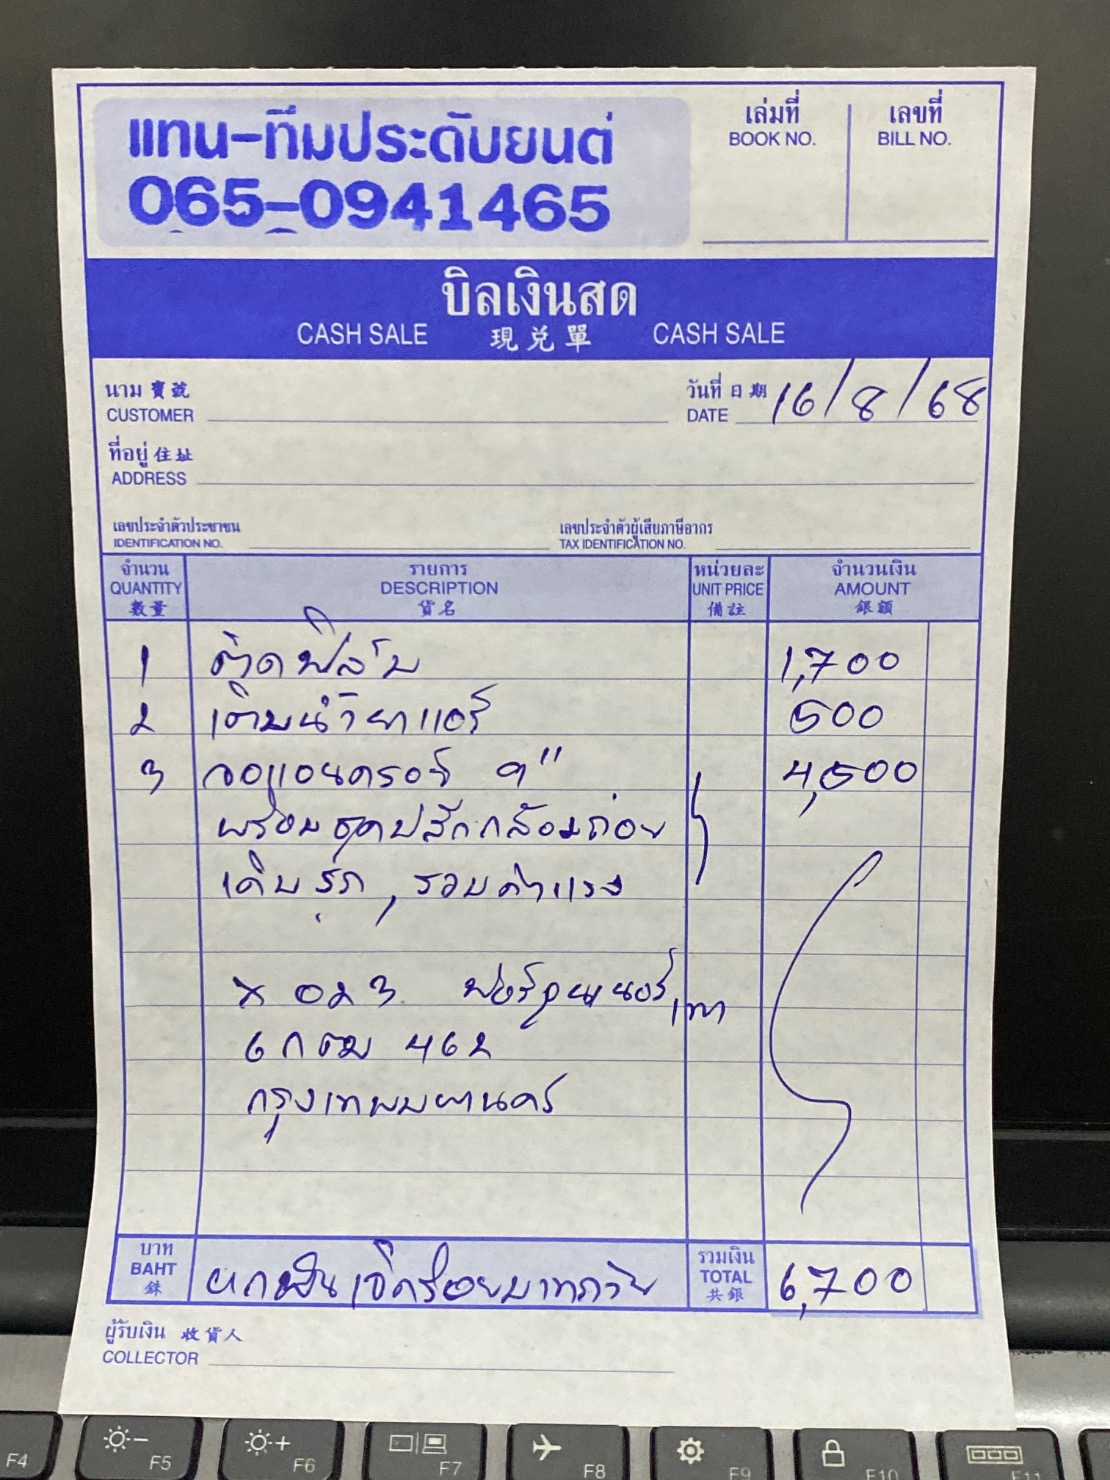 แทน-ทีมประดับยนต์
065-0941465
เล่มที่
BOOK NO.
เลขที่
BILL NO.
บิลเงินสด
CASH SALE 現兑單 CASH SALE
นาม 寶號
CUSTOMER
วันที่ 日期
DATE 16/8/68
ที่อยู่ 住址
ADDRESS
เลขประจำตัวประชาชน
IDENTIFICATION NO.
เลขประจำตัวผู้เสียภาษีอากร
TAX IDENTIFICATION NO.
จำนวน
QUANTITY
數量
รายการ
DESCRIPTION
貨名
หน่วยละ
UNIT PRICE
備註
จำนวนเงิน
AMOUNT
銀額
1 ติดฟิล์ม 1,700
2 เติมน้ำยาแอร์ 500
3 จอแอนดรอย์ 9" 4,500
พร้อมชุดปลั๊กกล้องถอย
เดิมรถ, รวมค่าแรง
x ฟอร์จูนเนอร์ เทา
6 กตม 462
กรุงเทพมหานคร
บาท
BAHT
銖
หกพันเจ็ดร้อยบาทถ้วน
รวมเงิน
TOTAL
共銀
6,700
ผู้รับเงิน 收貨人
COLLECTOR
F4
F5
F6
F7
F8
F9
F10